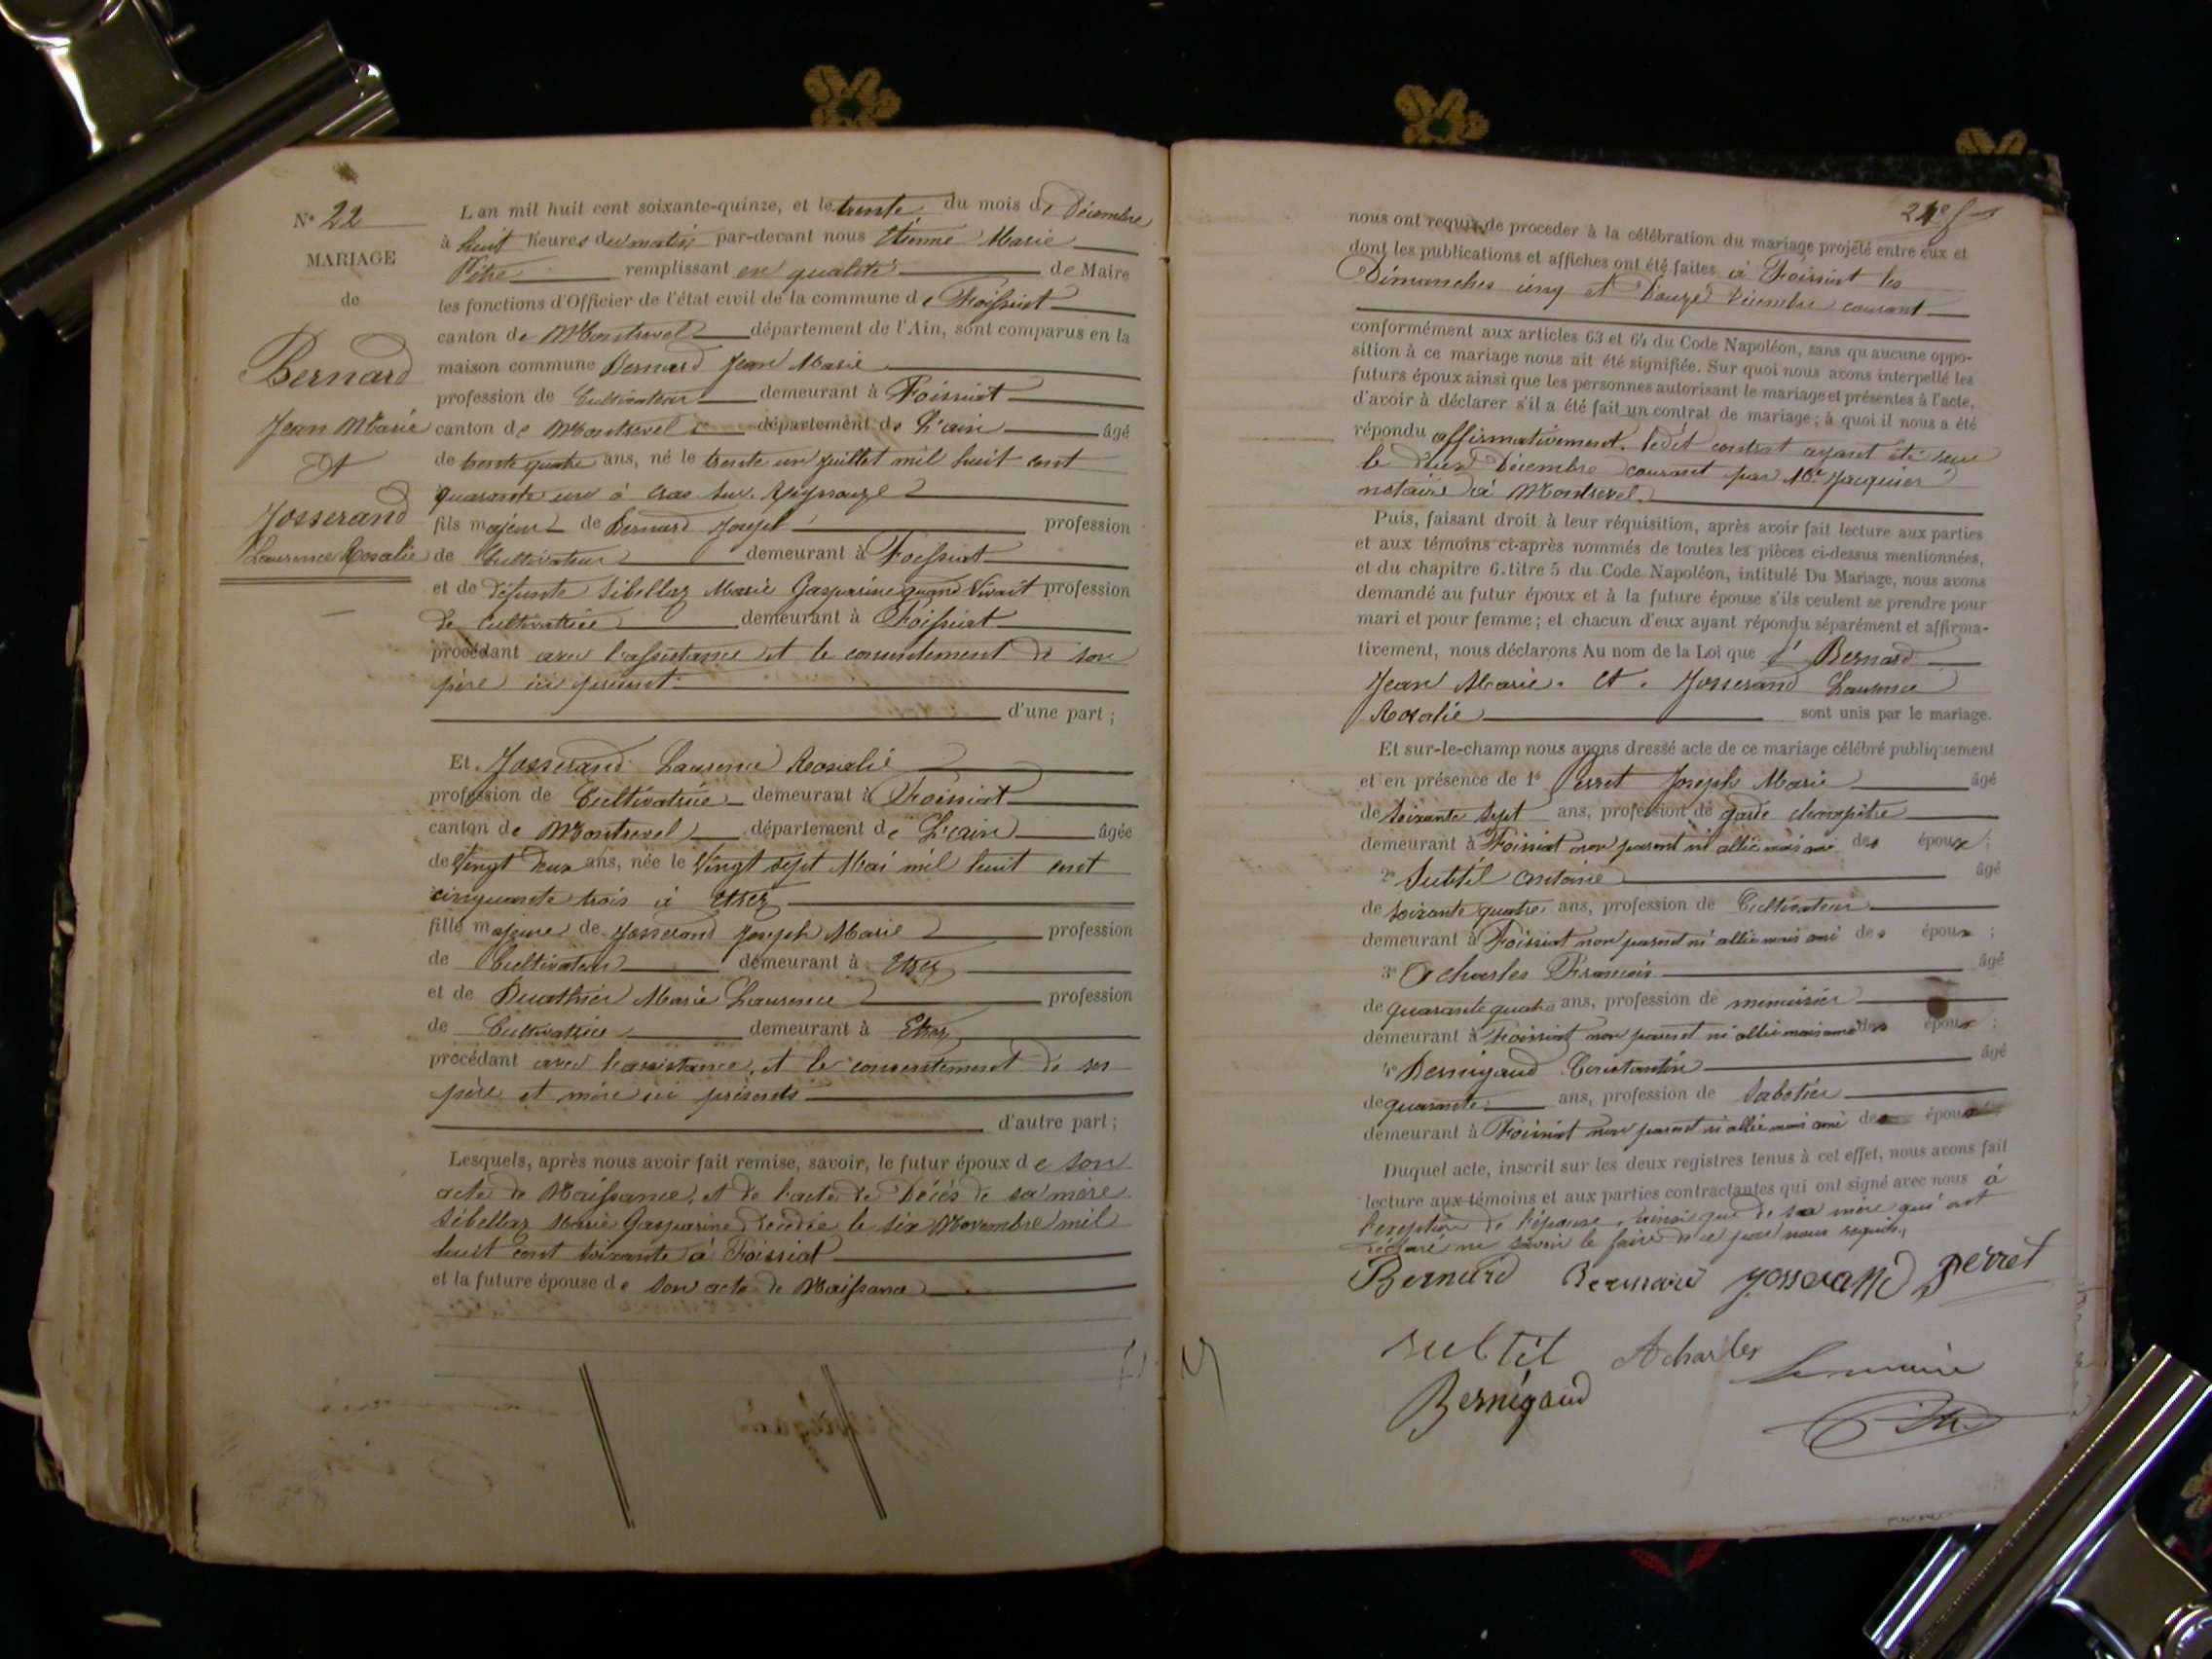 N° 22
MARIAGE
de
Bernard
Jean Marie
Et
Josserand
Laurence Rosalie
L an mil huit cent soixante-quinze, et le trente du mois de Décembre
à huit heures du matin par-devant nous Etienne Marie
Pitre remplissant en qualité de Maire
les fonctions d'Officier de l'état civil de la commune de Foissiat
canton de Montrevel département de l'Ain, sont comparus en la
maison commune Bernard Jean Marie
profession de Cultivateur demeurant à Foissiat
canton de Montrevel département de L'ain âgé
de trente quatre ans, né le trente un juillet mil huit cent
quarante un à Cras sur Reyssouze
fils majeur de Bernard Joseph profession
de Cultivateur demeurant à Foissiat
et de défunte Sibellas Marie Gasparine quand Vivait profession
de Cultivatrice demeurant à Foissiat
procédant avec l'assistance et le consentement de son
père ici présent
d'une part ;
Et Josserand Laurence Rosalie
profession de Cultivatrice demeurant à Foissiat
canton de Montrevel département de L'ain âgée
de Vingt deux ans, née le Vingt sept Mai mil huit cent
cinquante trois à Etrez
fille majeure de Josserand Joseph Marie profession
de Cultivateur demeurant à Etrez
et de Buathier Marie Laurence profession
de Cultivatrice demeurant à Etrez
procédant avec l'assistance et le consentement de ses
père et mère ici présents
d'autre part ;
Lesquels, après nous avoir fait remise, savoir, le futur époux de son
acte de Naissance, et de l'acte de Décès de sa mère
Sibellas Marie Gasparine décédée le six Novembre mil
huit cent soixante à Foissiat
et la future épouse de son acte de Naissance
nous ont requis de proceder à la célébration du mariage projété entre eux et
dont les publications et affiches ont été faites à Foissiat les
Dimanches cinq et Douze Décembre courant
conformément aux articles 63 et 64 du Code Napoléon, sans qu aucune oppo-
sition à ce mariage nous ait été signifiée. Sur quoi nous avons interpellé les
futurs époux ainsi que les personnes autorisant le mariage et présentes à l'acte,
d'avoir à déclarer s'il a été fait un contrat de mariage ; à quoi il nous a été
répondu affirmativement. ledit contrat ayant été reçu
le deux Décembre courant par Me Jacquier
notaire à Montrevel.
Puis, faisant droit à leur réquisition, après avoir fait lecture aux parties
et aux témoins ci-après nommés de toutes les pièces ci-dessus mentionnées,
et du chapitre 6. titre 5 du Code Napoléon, intitulé Du Mariage, nous avons
demandé au futur époux et à la future épouse s'ils veulent se prendre pour
mari et pour femme ; et chacun d'eux ayant répondu séparément et affirma-
tivement, nous déclarons Au nom de la Loi que Bernard
Jean Marie. Et. Josserand Laurence
Rosalie sont unis par le mariage.
Et sur-le-champ nous avons dressé acte de ce mariage célébré publiquement
et en présence de 1° Perret Joseph Marie âgé
de soixante sept ans, profession de garde champêtre
demeurant à Foissiat non parent ni allié mais ami des époux ;
2° Subtil Antoine âgé
de soixante quatre ans, profession de Cultivateur
demeurant à Foissiat non parent ni allié mais ami des époux ;
3° Acharles François âgé
de quarante quatre ans, profession de menuisier
demeurant à Foissiat non parent ni allié mais ami des époux ;
4° Bernigaud Constantin âgé
de quarante ans, profession de Sabotier
demeurant à Foissiat non parent ni allié mais ami des époux
Duquel acte, inscrit sur les deux registres tenus à cet effet, nous avons fait
lecture aux témoins et aux parties contractantes qui ont signé avec nous à
l'exception de l'épouse, ainsi que de sa mère qui ont
déclaré ne savoir le faire de ce par nous requis.
Bernard Bernard Josserand Perret
Subtil Acharles Le maire
Bernigaud